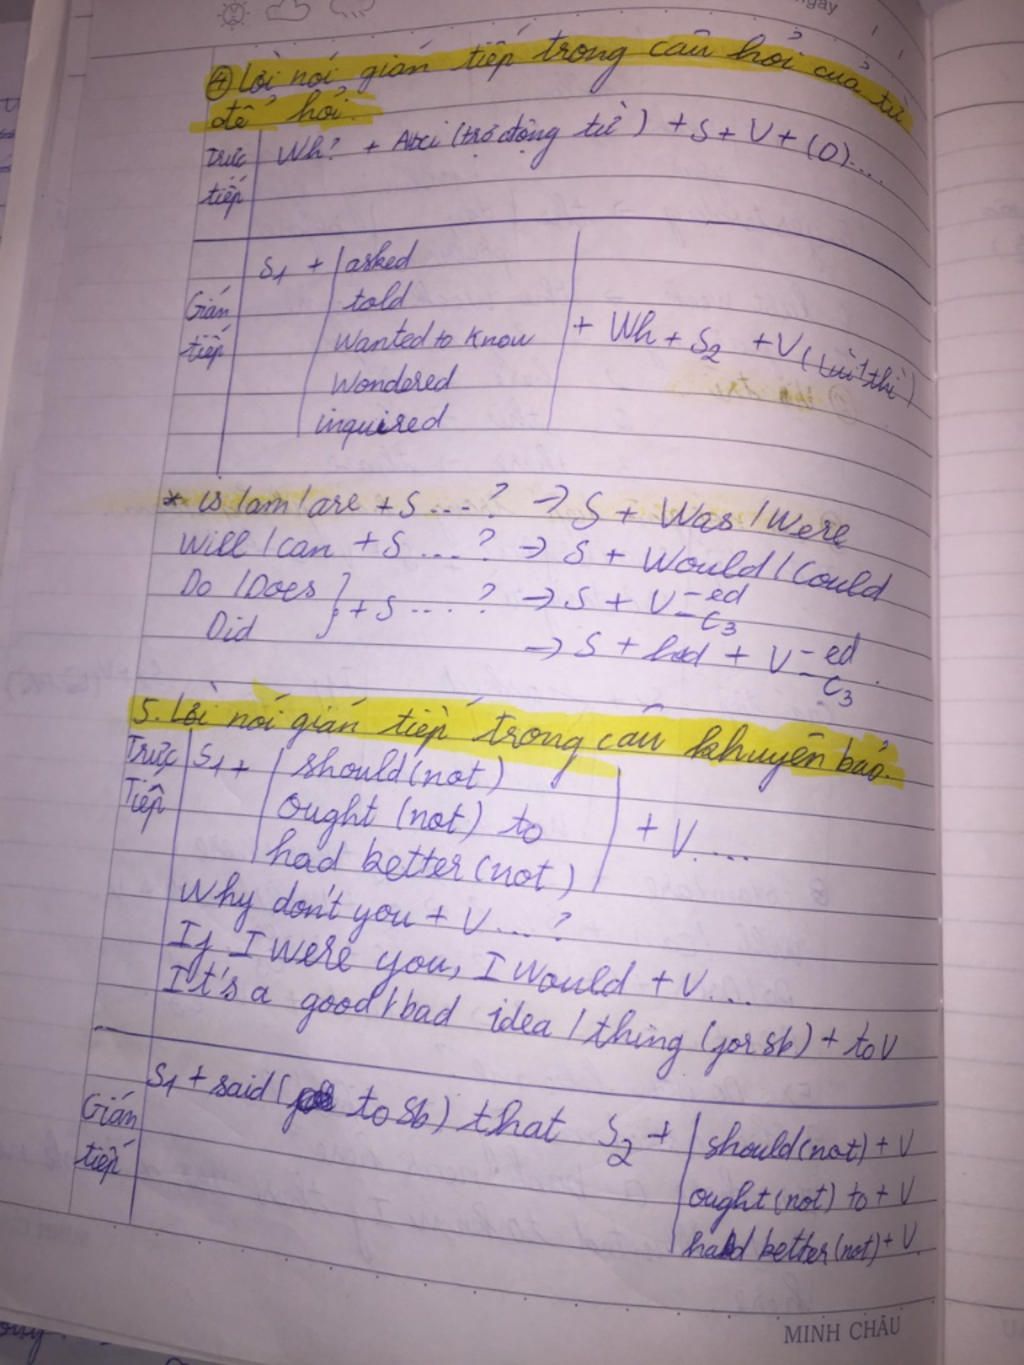 ④ Lời nói gián tiếp trong câu hỏi của từ
để hỏi.
Trực
tiếp
Wh? + Auxi (trợ động từ) + S + V + (O)....
Gián
tiếp
S1 +
asked
told
Wanted to know
Wondered
inquired
+ Wh + S2 + V (lùi 1 thì)
* is / am / are + S ...? → S + Was / Were
Will / can + S ....? → S + Would / Could
Do / Does
Did
} + S ....? → S + V-ed
-C3
→ S + had + V-ed
-C3
5. Lời nói gián tiếp trong câu khuyên bảo.
Trực
Tiếp
S1 +
should (not)
ought (not) to
had better (not)
+ V....
Why don't you + V....?
If I were you, I would + V...
It's a good / bad idea / thing (for sb) + to V
Gián
tiếp
S1 + said ( to sb) that S2 +
should (not) + V
ought (not) to + V
had better (not) + V
MINH CHÂU